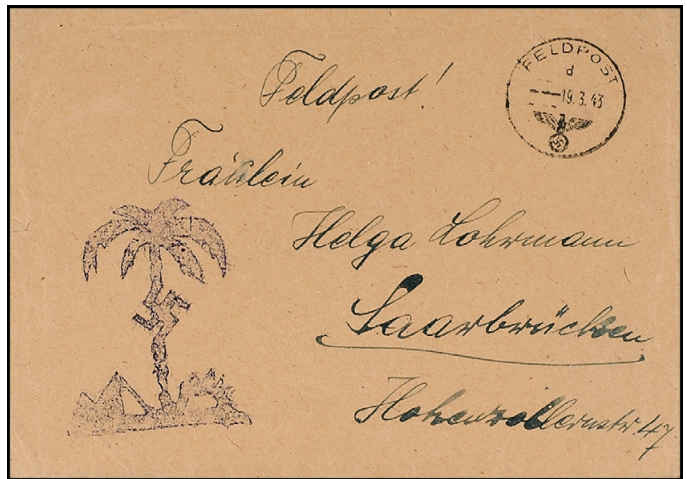 Feldpost!
FELDPOST
d
19.3.43
Fräulein
Helga Lohrmann
Saarbrücken
Hohenzollernstr. 47